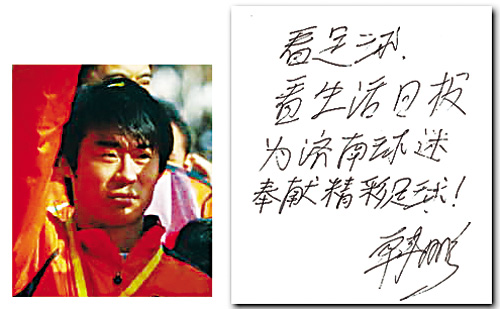 看足球,
看生活日报
为济南球迷
奉献精彩足球!
韩鹏